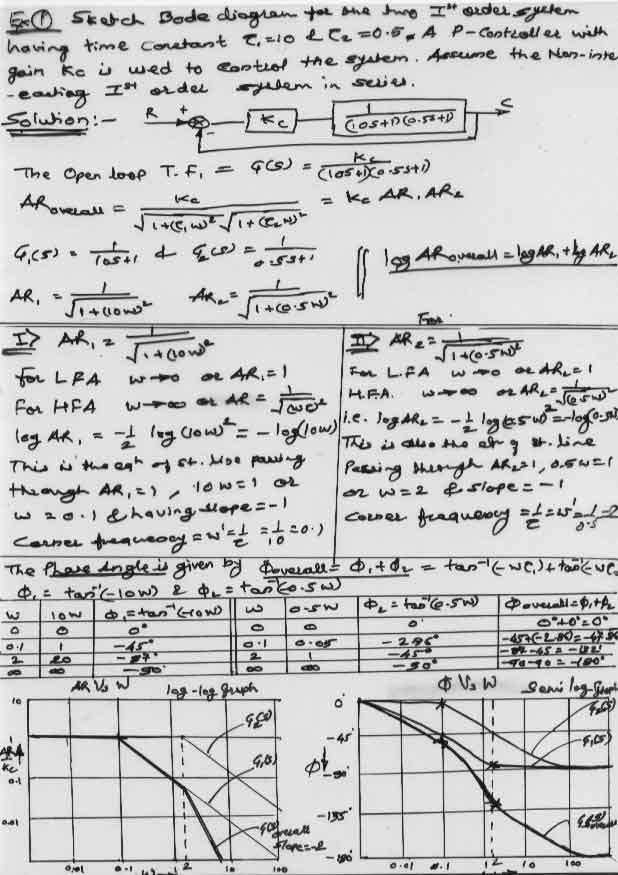 Ex① Sketch Bode diagram for the two Ist order system
having time constant τ1=10 & τ2=0.5. A P-Controller with
gain Kc is used to control the system. Assume the Non-inte
-racting Ist order system in series.
Solution:-
R + - Kc 1/(10s+1)(0.5s+1) C
The Open loop T.F. = G(s) = Kc/(10s+1)(0.5s+1)
ARoverall = Kc/√1+(τ1w)² √1+(τ2w)² = Kc AR1 AR2
G1(s) = 1/10s+1 & G2(s) = 1/0.5s+1
log ARoverall = log AR1 + log AR2
AR1 = 1/√1+(10w)² AR2 = 1/√1+(0.5w)²
I> AR1 = 1/√1+(10w)²
for LFA w→0 or AR1=1
For HFA w→∞ or AR = 1/√(wτ)²
log AR1 = -1/2 log(10w)² = -log(10w)
This is the eqn of st. line passing
through AR1=1, 10w=1 or
w = 0.1 & having slope = -1
Corner frequency = w' = 1/τ = 1/10 = 0.1
For
II> AR2 = 1/√1+(0.5w)²
For L.F.A w→0 or AR2=1
H.F.A. w→∞ or AR2 = 1/√(0.5w)²
i.e. log AR2 = -1/2 log(0.5w)² = -log(0.5w)
This is also the eqn of st. line
Passing through AR2=1, 0.5w=1
or w=2 & slope = -1
Corner frequency = 1/τ = w' = 1/0.5 = 2
The Phase Angle is given by Φoverall = Φ1+Φ2 = tan⁻¹(-wτ1)+tan⁻¹(-wτ2
Φ1 = tan⁻¹(-10w) & Φ2 = tan⁻¹(-0.5w)
W 10W Φ1=tan⁻¹(-10w) W 0.5W Φ2=tan⁻¹(-0.5w) Φoverall=Φ1+Φ2
0 0 0° 0 0 0° 0°+0°=0°
0.1 1 -45° 0.1 0.05 -2.86° -45+(-2.86)=-47.86
2 20 -87° 2 1 -45° -87-45=-132°
∞ ∞ -90° ∞ ∞ -90° -90-90=-180°
AR Vs W log-log graph
10
1
0.1
0.01
AR/Kc
G2(s)
G1(s)
G(s) overall
slope=-2
0.01 0.1 1 2 10 100
Φ Vs W Semi log-Graph
0°
-45°
-90°
-135°
-180°
Φ↓
G2(s)
G1(s)
G(s) overall
0.01 0.1 1 2 10 100